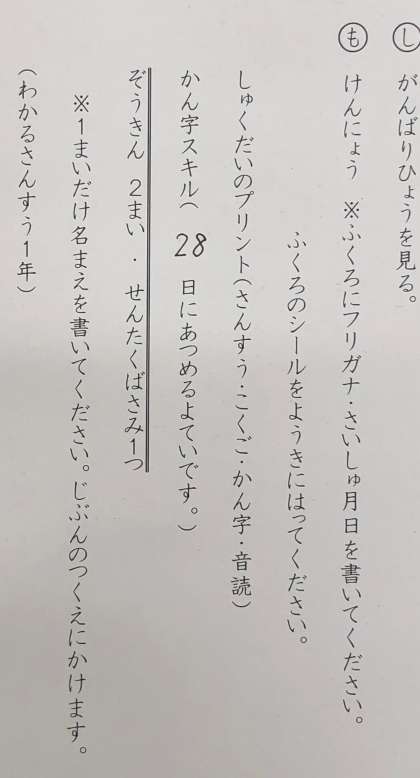 し がんばりひょうを見る。
も けんにょう ※ふくろにフリガナ・さいしゅ月日を書いてください。
ふくろのシールをようきにはってください。
しゅくだいのプリント(さんすう・こくご・かん字・音読)
かん字スキル( 28 日にあつめるよていです。)
ぞうきん 2まい ・ せんたくばさみ1つ
※1まいだけ名まえを書いてください。じぶんのつくえにかけます。
(わかるさんすう1年)